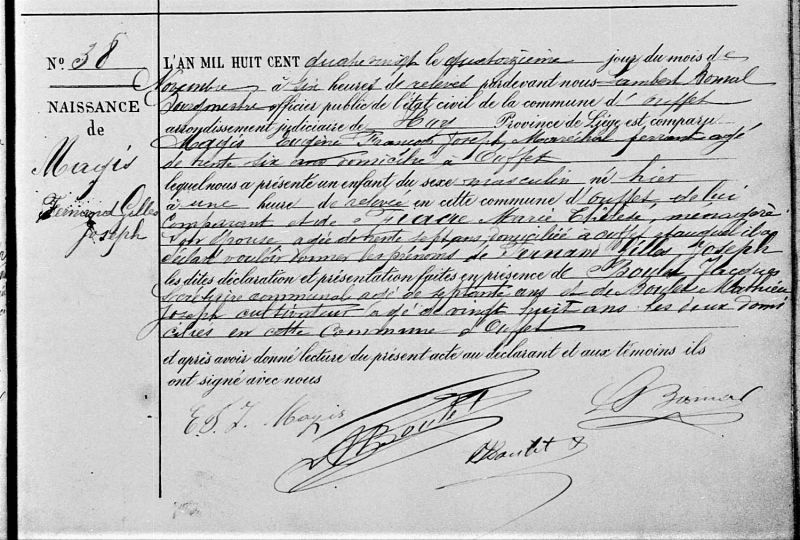 N.º 38
NAISSANCE
de
Magis
Fernand Gilles
Joseph
L'AN MIL HUIT CENT quatre vingt le quatorzième jour du mois de
Novembre à six heures de relevée pardevant nous Lambert Bonmal
Bourgmestre officier public de l'état civil de la commune d'Ouffet
arrondissement judiciaire de Huy Province de Liége est comparu
Magis Eugène François Joseph, Maréchal ferrant agé
de trente six ans domicilié à Ouffet
lequel nous a présenté un enfant du sexe masculin né hier
à une heure de relevée en cette commune d'ouffet, de lui
comparant et de Marie Thérèse, menagère
son épouse agée de trente sept ans, domiciliée à ouffet et auquel il a
déclaré vouloir donner les prénoms de Fernand Gilles Joseph
les dites déclaration et présentation faites en présence de Boulet Jacques
Secrétaire communal agé de septante ans et de Boulet Mathieu
Joseph cultivateur agé de vingt huit ans les deux domi
ciliés en cette Commune d'Ouffet
et après avoir donné lecture du présent acte au déclarant et aux témoins ils
ont signé avec nous
E F J Magis
Boulet
Boulet
L Bonmal